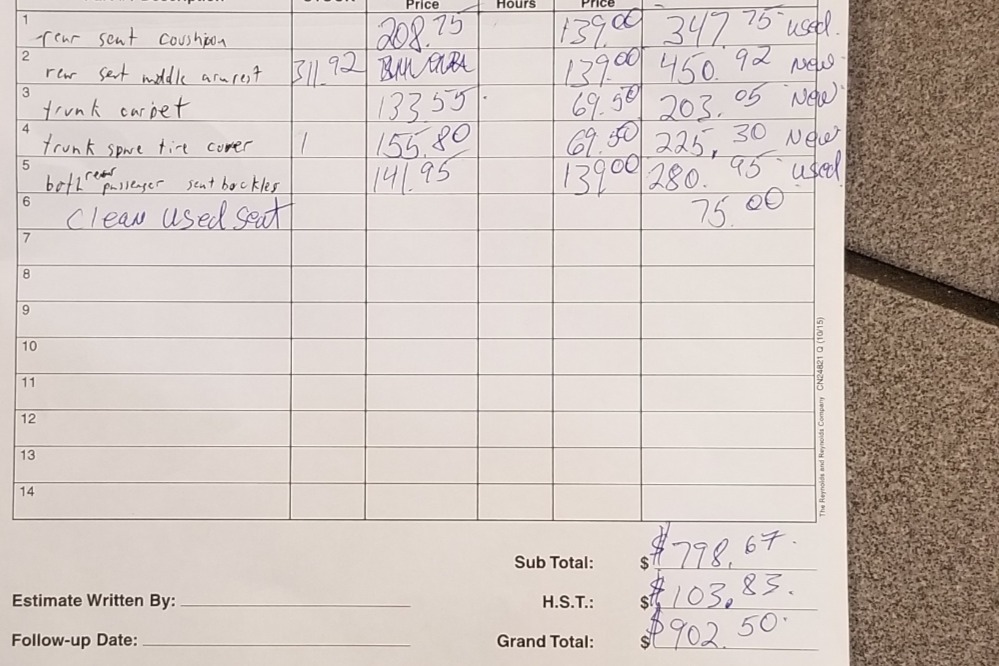 Price Hours Price
1 rear seat coushion 208.75 139.00 347.75 used
2 rear seat middle armrest 311.92 139.00 450.92 New
3 trunk carpet 133.55 69.50 203.05 New
4 trunk spare tire cover 1 155.80 69.50 225.30 New
5 both rear passenger seat buckles 141.95 139.00 280.95 used
6 Clean used seat 75.00
7
8
9
10
11
12
13
14
The Reynolds and Reynolds Company CN24821 Q (10/15)
Sub Total: $ $798.67
Estimate Written By: H.S.T.: $ $103.83
Follow-up Date: Grand Total: $ $902.50